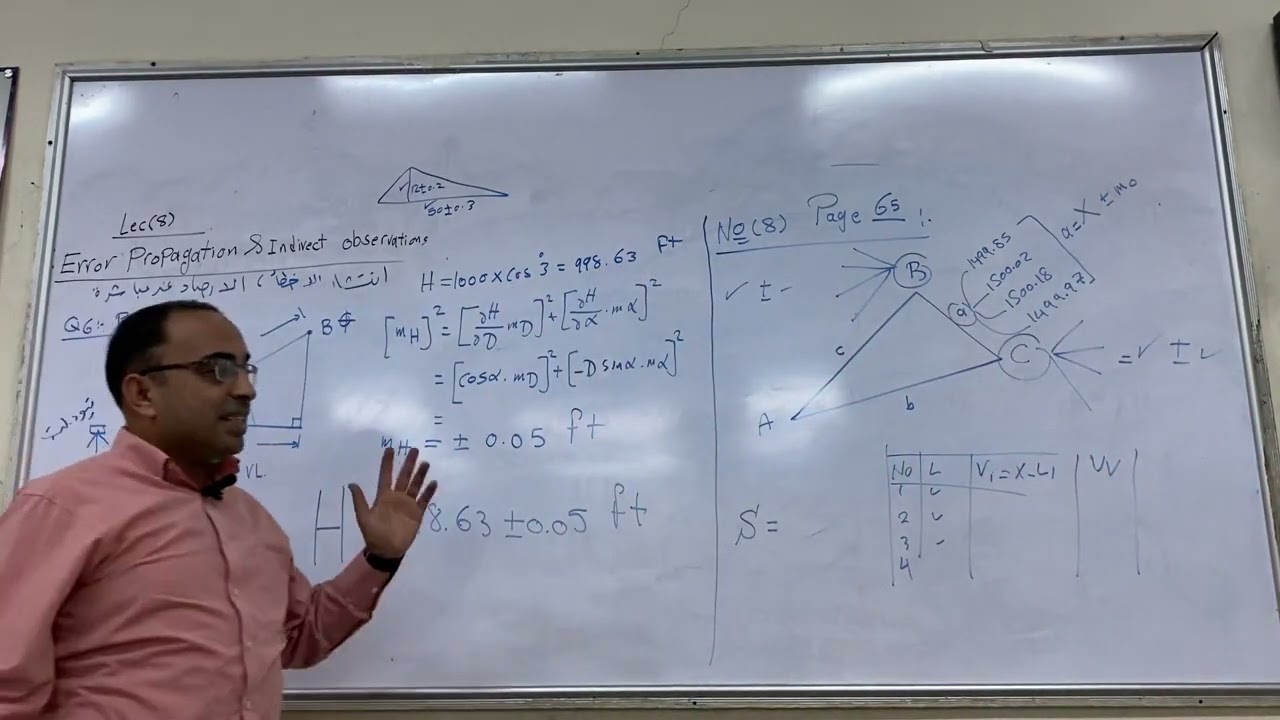 12±0.2
50±0.3
Lec(8)
Error Propagation & Indirect observations
انتشار الاخطاء
Q6:-
B
VL.
H = 1000 x cos 3° = 998.63 ft
[mH]² = [∂H/∂D mD]² + [∂H/∂α . mα]²
= [cosα . mD]² + [-D sinα . mα]²
=
mH = ± 0.05 ft
H 8.63 ±0.05 ft
No(8) Page 65 :.
✓ ± -
B
a
1499.85
1500.02
1500.18
1499.97
a = X ± m0
c
C
= ✓ ± ✓
A
b
No L V₁ = X-L1 VV
1 ✓
2 ✓
3 -
4
S =